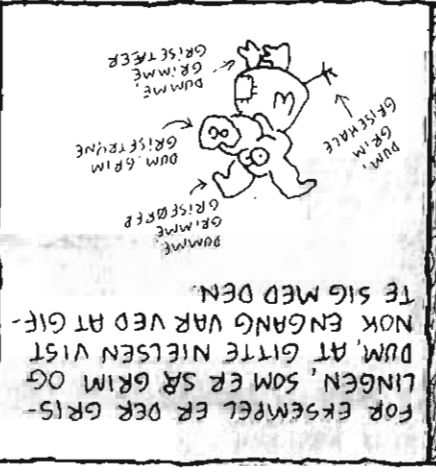 FOR EKSEMPEL ER DER GRIS-
LINGEN, SOM ER SÅ GRIM OG
DUM, AT GITTE NIELSEN VIST
NOK ENGANG VAR VED AT GIF-
TE SIG MED DEN.
DUMME,
GRIMME
GRISEØRER
DUM, GRIM
GRISETRYNE
DUM,
GRIM
GRISEHALE
DUMME,
GRIMME
GRISETÆER